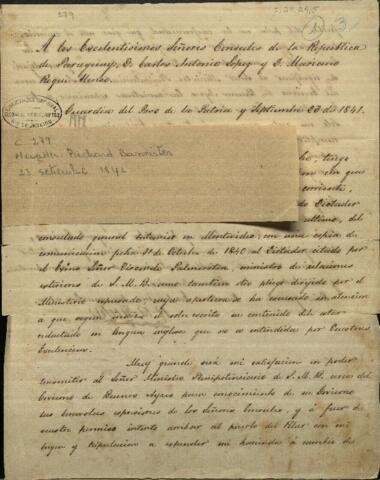 239
3
A los Excelentisimos Señores Consules de la Republica
de Paraguay, D. Carlos Antonio Lopez y D. Mariano
Roque Alonso.
Guardia del Paso de la Patria y Septiembre 23 de 1841.
C 239
Hughes Richard Bannister
23 setiembre 1841
tengo
en que
corriente,
Dictador
ultimo, del
consulado general britanico en Montevideo, con una copia de
comunicacion fecha 31 de Octubre de 1840 al Dictador citado por
el Exmo Señor Vizconde Palmerston, ministro de relaciones
esteriores de S. M. B. como tambien otro pliego dirigido por el
Ministerio espresado cuya apertura se ha escusado en atencion
a que segun indica el sobrescrito su contenido debe estar
redactado en lengua inglesa que no es entendida por Vuestras
Excelencias.
Muy grande será mi satisfaccion en poder
trasmitir al Señor Ministro Plenipotenciario de S. M. B. cerca del
Gobierno de Buenos Ayres para conocimiento de su Gobierno
las benevolas espresiones de los Señores Consules, y á favor de
vuestro permiso intento arribar al puerto del Pilar con mi
buque y tripulacion a espender mi hacienda á cambio de